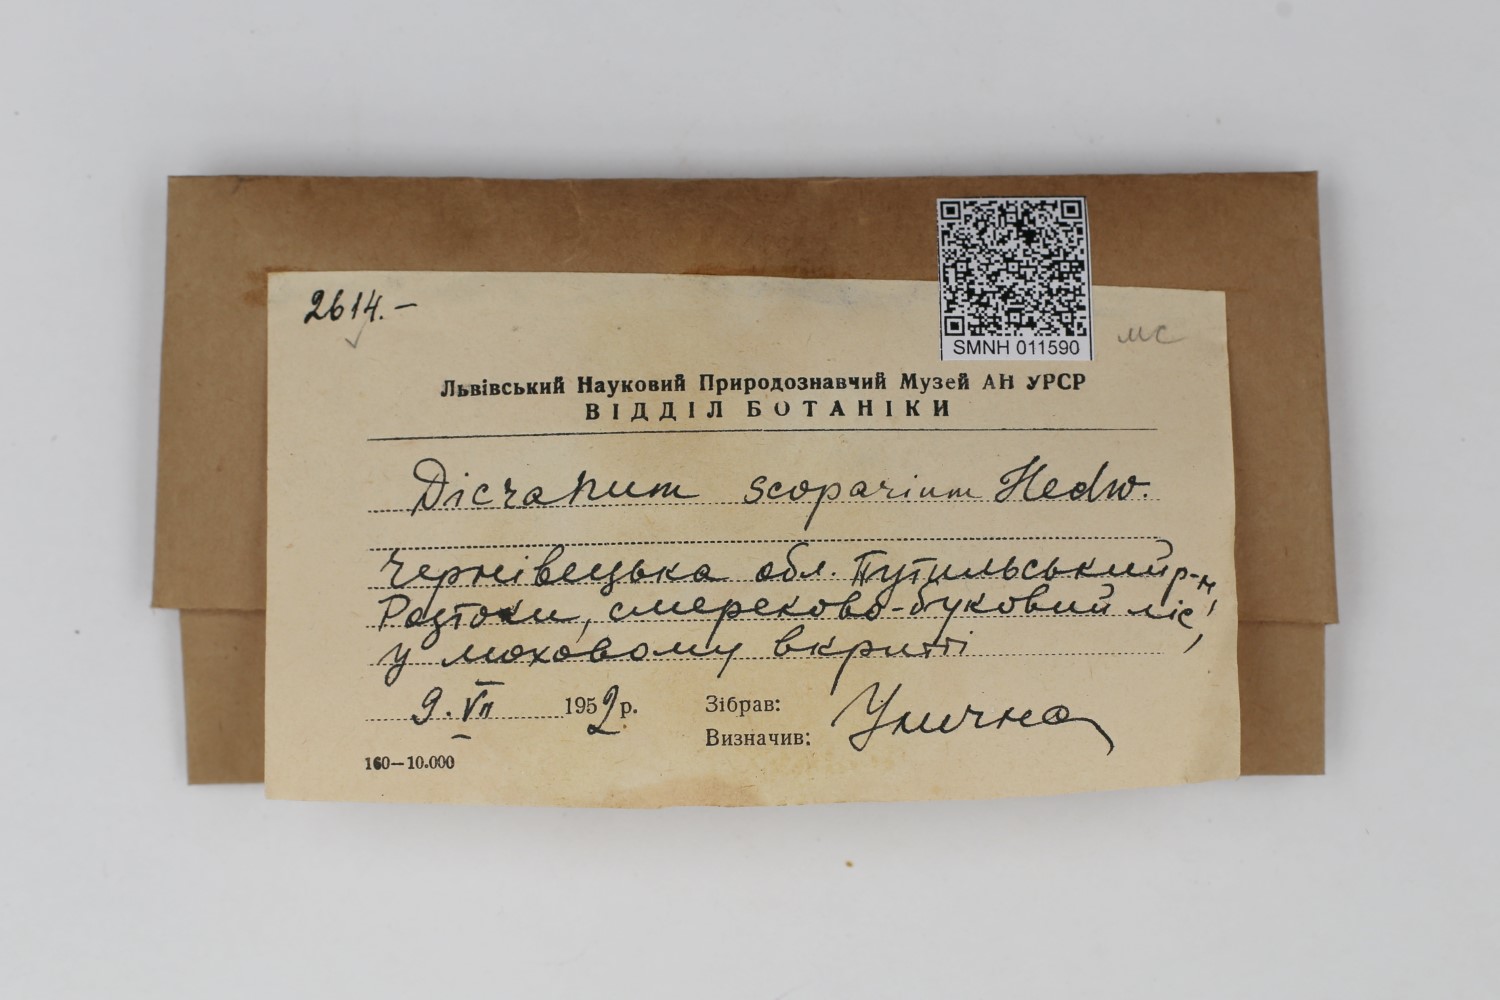 2614.-
SMNH 011590
мс
Львівський Науковий Природознавчий Музей АН УРСР
ВІДДІЛ БОТАНІКИ
Dicranum scoparium Hedw.
Чернівецька обл. Путильський р-н,
Розтоки, смереково-буковий ліс,
у моховому вкритті
9.VII 1952р.
Зібрав:
Визначив:
Улична
160—10.000